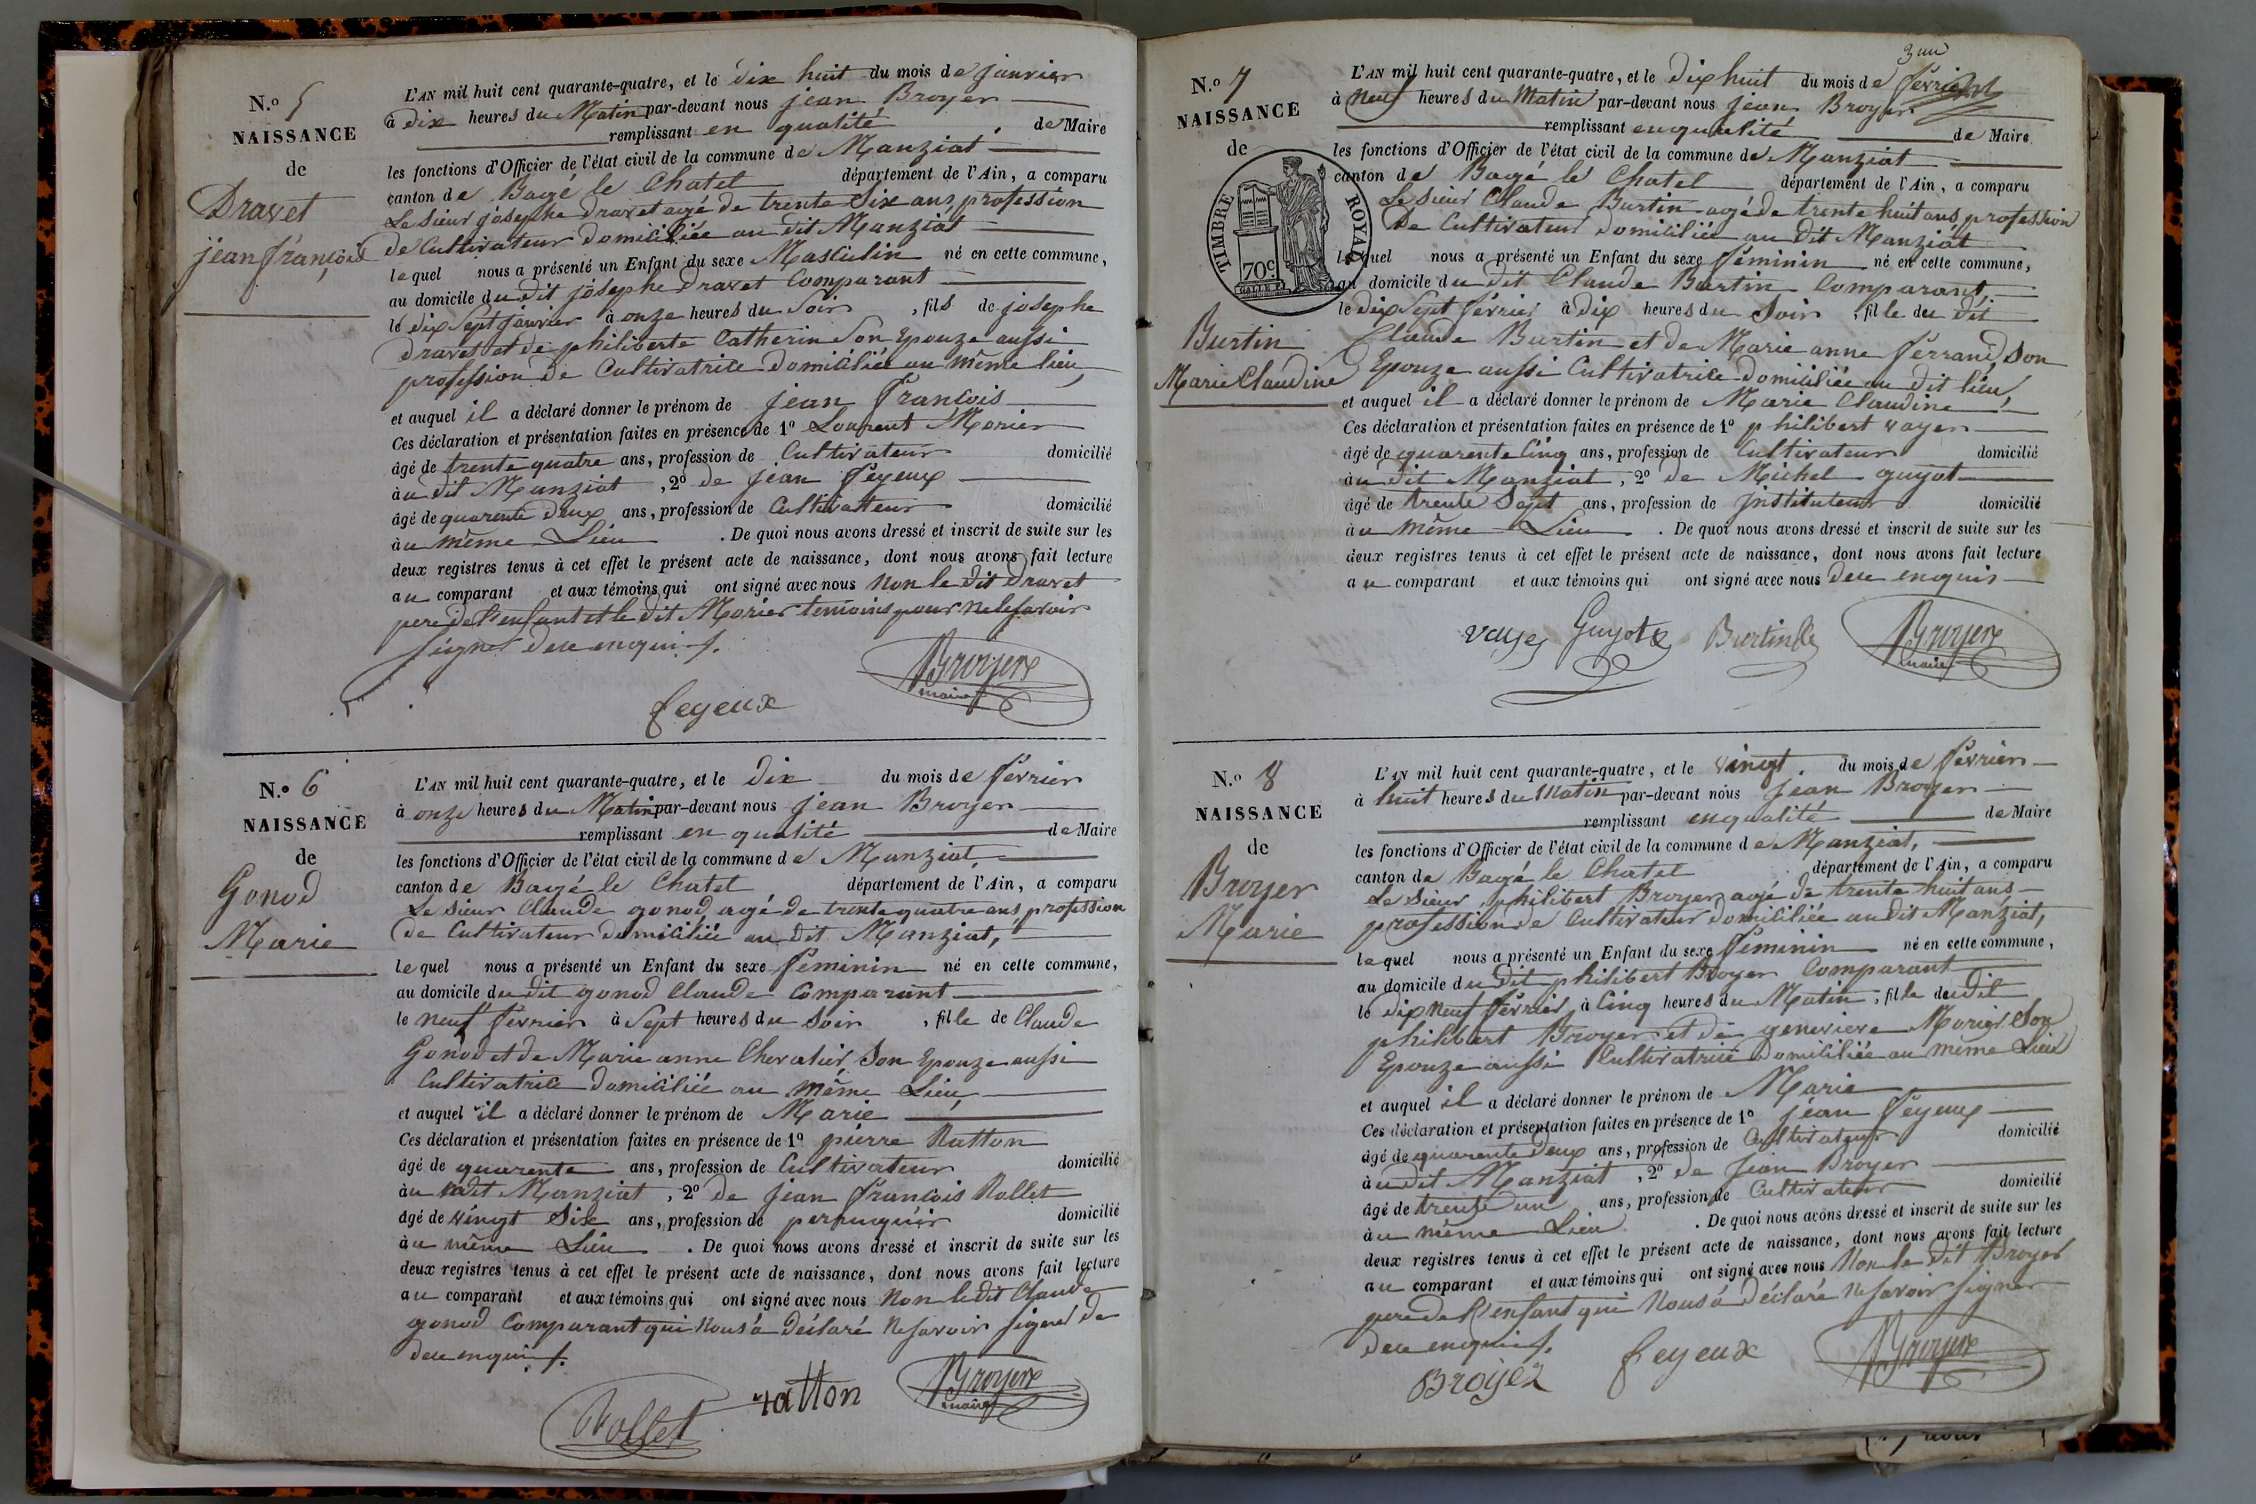 N.o 5
NAISSANCE
de
Dravet
jean françois
L'AN mil huit cent quarante-quatre, et le dix huit du mois de janvier
à dix heures du Matin par-devant nous jean Broyer
remplissant en qualité de Maire
les fonctions d'Officier de l'état civil de la commune de Manziat
canton de Bagé le Chatel département de l'Ain, a comparu
Le sieur josephe dravet agé de trente Six ans profession
de Cultivateur domiciliée au dit Manziat
lequel nous a présenté un Enfant du sexe Masculin né en cette commune,
au domicile du dit josephe Dravet Comparant
le dix Sept janvier à onze heures du Soir, fils de josephe
dravet et de philiberte Catherin Son Epouze aussi
profession de Cultivatrice domiciliée au même lieu,
et auquel il a déclaré donner le prénom de jean François
Ces déclaration et présentation faites en présence de 1o Laurent Morier
âgé de trente quatre ans, profession de Cultivateur domicilié
au dit Manziat, 2o de jean feyeux
âgé de quarente deux ans, profession de Cultivateur domicilié
au même Lieu. De quoi nous avons dressé et inscrit de suite sur les
deux registres tenus à cet effet le présent acte de naissance, dont nous avons fait lecture
au comparant et aux témoins qui ont signé avec nous Non le dit Dravet
pere de l'enfant et le dit Morier temoins pour ne le savoir
signer de ce enquis.
Broyer
maire
feyeux
N.o 6
NAISSANCE
de
Gonod
Marie
L'AN mil huit cent quarante-quatre, et le dix du mois de février
à onze heures du Matin par-devant nous jean Broyer
remplissant en qualité de Maire
les fonctions d'Officier de l'état civil de la commune de Manziat,
canton de Bagé le Chatel département de l'Ain, a comparu
Le sieur Claude gonod agé de trente quatre ans profession
de Cultivateur domiciliée au dit Manziat,
lequel nous a présenté un Enfant du sexe féminin né en cette commune,
au domicile du dit gonod Claude Comparant
le neuf février à Sept heures du Soir, fille de Claude
Gonod et de Marie anne Chevalier, Son Epouze aussi
Cultivatrice domiciliée au même Lieu,
et auquel il a déclaré donner le prénom de Marie
Ces déclaration et présentation faites en présence de 1o pierre Ratton
âgé de quarente ans, profession de Cultivateur domicilié
au dit Manziat, 2o de jean françois Rollet
âgé de vingt Six ans, profession de domicilié
au même Lieu. De quoi nous avons dressé et inscrit de suite sur les
deux registres tenus à cet effet le présent acte de naissance, dont nous avons fait lecture
au comparant et aux témoins qui ont signé avec nous Non le dit Claude
gonod Comparant qui Nous a déclaré Ne savoir signer de
dece enquis.
Rollet ratton Broyer
maire
3
N.o 7
NAISSANCE
de
TIMBRE ROYAL
70c
Burtin
Marie Claudine
L'AN mil huit cent quarante-quatre, et le dix huit du mois de février
à Neuf heures du Matin par-devant nous jean Broyer
remplissant en qualité de Maire
les fonctions d'Officier de l'état civil de la commune de Manziat
canton de Bagé le Chatel département de l'Ain, a comparu
Le sieur Claude Burtin agé de trente huit ans profession
De Cultivateur domiciliée au dit Manziat
lequel nous a présenté un Enfant du sexe féminin né en cette commune,
au domicile du dit Claude Burtin Comparant,
le dix Sept février à dix heures du Soir, fille du dit
Claude Burtin et de Marie anne ferrand, Son
Epouze aussi Cultivatrice domiciliée au dit lieu,
et auquel il a déclaré donner le prénom de Marie Claudine
Ces déclaration et présentation faites en présence de 1o philibert vayer
âgé de quarente Cinq ans, profession de Cultivateur domicilié
au dit Manziat, 2o de Michel guyot
âgé de trente Sept ans, profession de jnstituteur domicilié
au même Lieu. De quoi nous avons dressé et inscrit de suite sur les
deux registres tenus à cet effet le présent acte de naissance, dont nous avons fait lecture
au comparant et aux témoins qui ont signé avec nous dece enquis
vayer Guyot Burtin Broyer
maire
N.o 8
NAISSANCE
de
Broyer
Marie
L'AN mil huit cent quarante-quatre, et le vingt du mois de février
à huit heures du Matin par-devant nous jean Broyer
remplissant en qualité de Maire
les fonctions d'Officier de l'état civil de la commune de Manziat,
canton de Bagé le Chatel département de l'Ain, a comparu
Le sieur philibert Broyer agé de trente huit ans
profession de Cultivateur domiciliée au dit Manziat,
lequel nous a présenté un Enfant du sexe féminin né en cette commune,
au domicile du dit philibert Broyer Comparant
le dix neuf février, à Cinq heures du Matin, fille du dit
philibert Broyer et de genevieve Morier Son
Epouze aussi Cultivatrice domiciliée au même Lieu
et auquel il a déclaré donner le prénom de Marie
Ces déclaration et présentation faites en présence de 1o jean feyeux
âgé de quarente deux ans, profession de Cultivateur domicilié
au dit Manziat, 2o de jean Broyer
âgé de trente un ans, profession de Cultivateur domicilié
au même Lieu. De quoi nous avons dressé et inscrit de suite sur les
deux registres tenus à cet effet le présent acte de naissance, dont nous avons fait lecture
au comparant et aux témoins qui ont signé avec nous Non le dit Broyer
pere de l'enfant qui Nous a déclaré Ne savoir signer
dece enquis.
Broyer feyeux Broyer